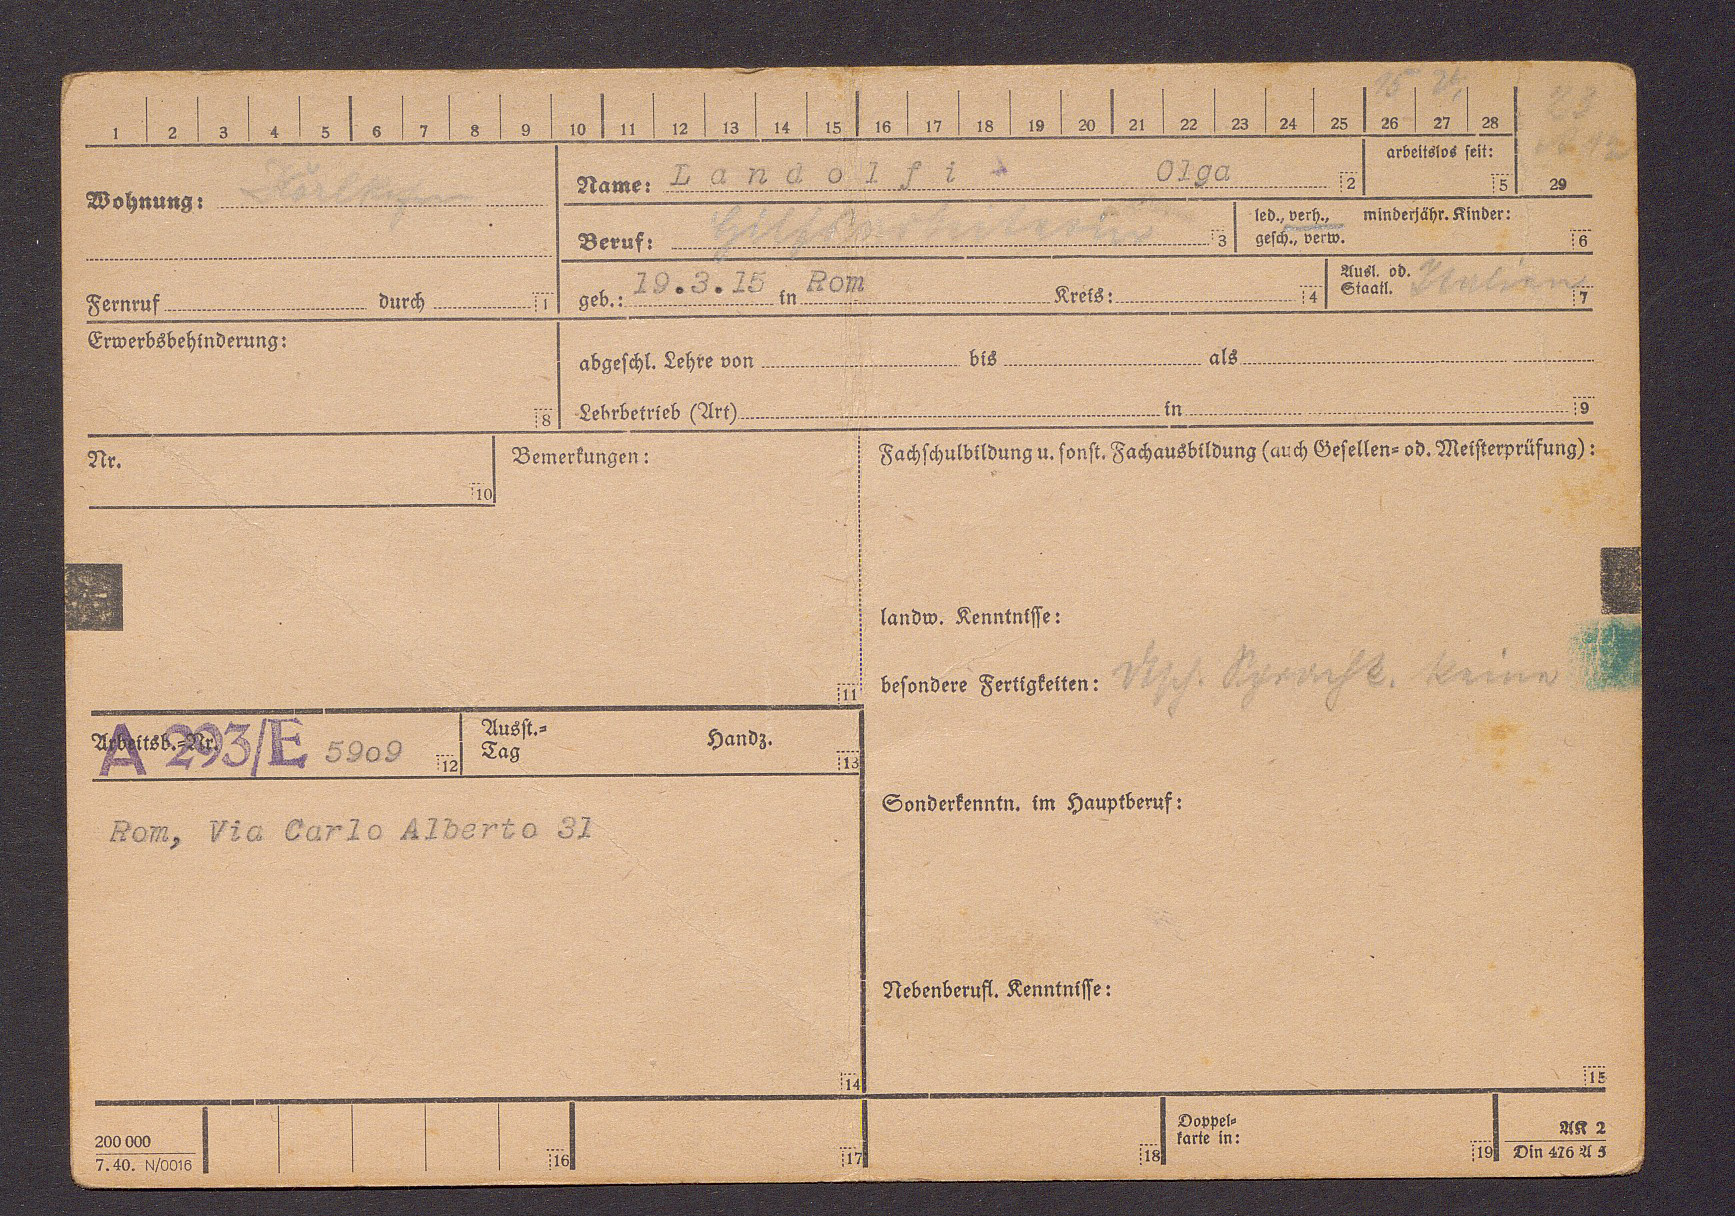 15 V.
23
1 2 3 4 5 6 7 8 9 10 11 12 13 14 15 16 17 18 19 20 21 22 23 24 25 26 27 28
29
Wohnung:
Name: Landolfi Olga 2
arbeitslos seit: 5
Beruf: Hilfsarbeiterin 3
led., verh., minderjähr. Kinder:
gesch., verw. 6
Fernruf durch 1
geb.: 19.3.15 in Rom Kreis: 4
Ausl. od.
Staatl. Italien 7
Erwerbsbehinderung: 8
abgeschl. Lehre von bis als
Lehrbetrieb (Art) in 9
Nr. 10
Bemerkungen: 11
Fachschulbildung u. sonst. Fachausbildung (auch Gesellen= od. Meisterprüfung):
landw. Kenntnisse:
besondere Fertigkeiten: Dtsch. Sprachk. keine
Arbeitsb.=Nr. A 293/E 5909 12
Ausst.=
Tag Handz. 13
Rom, Via Carlo Alberto 31
14
Sonderkenntn. im Hauptberuf:
Nebenberufl. Kenntnisse:
15
200 000
7. 40. N/0016
16 17 18
Doppel=
karte in: 19
AK 2
Din 476 A 5